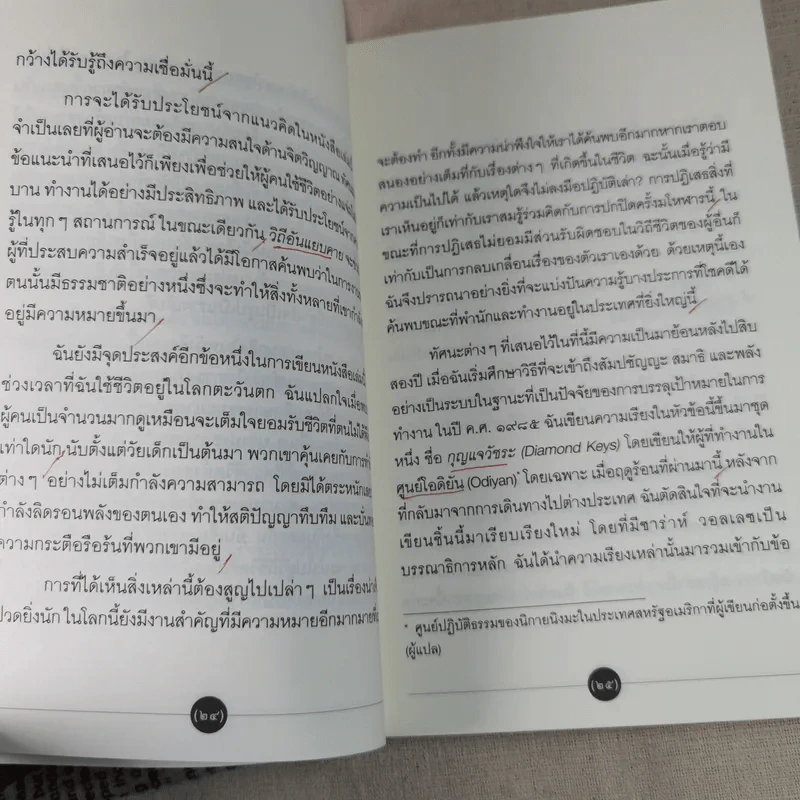 กว้างได้รับรู้ถึงความเชื่อมั่นนี้
การจะได้รับประโยชน์จากแนวคิดในหนังสือเล่มนี้
จำเป็นเลยที่ผู้อ่านจะต้องมีความสนใจด้านจิตวิญญาณ
ข้อแนะนำที่เสนอไว้ก็เพียงเพื่อช่วยให้ผู้คนใช้ชีวิตอย่าง
บาน ทำงานได้อย่างมีประสิทธิภาพ และได้รับประโยชน์จาก
รู้ในทุก ๆ สถานการณ์ ในขณะเดียวกัน วิถีอันแยบคาย จะ
ผู้ที่ประสบความสำเร็จอยู่แล้วได้มีโอกาสค้นพบว่าในการงาน
ตนนั้นมีธรรมชาติอย่างหนึ่งซึ่งจะทำให้สิ่งทั้งหลายที่เขากำลัง
อยู่มีความหมายขึ้นมา
ฉันยังมีจุดประสงค์อีกข้อหนึ่งในการเขียนหนังสือเล่มนี้
ช่วงเวลาที่ฉันใช้ชีวิตอยู่ในโลกตะวันตก ฉันแปลกใจเมื่อ
ผู้คนเป็นจำนวนมากดูเหมือนจะเต็มใจยอมรับชีวิตที่ตนไม่ได้พึง
เท่าใดนัก นับตั้งแต่วัยเด็กเป็นต้นมา พวกเขาคุ้นเคยกับการทำ
ต่าง ๆ อย่างไม่เต็มกำลังความสามารถ โดยมิได้ตระหนักเลย
กำลังลิดรอนพลังของตนเอง ทำให้สติปัญญาทึบทึม และบั่นทอน
ความกระตือรือร้นที่พวกเขามีอยู่
การที่ได้เห็นสิ่งเหล่านี้ต้องสูญไปเปล่า ๆ เป็นเรื่องน่า
ปวดยิ่งนัก ในโลกนี้ยังมีงานสำคัญที่มีความหมายอีกมากมายที่
(๒๔)
จะต้องทำ อีกทั้งมีความน่าพึงใจให้เราได้ค้นพบอีกมากหากเราตอบ
สนองอย่างเต็มที่กับเรื่องต่าง ๆ ที่เกิดขึ้นในชีวิต ฉะนั้นเมื่อรู้ว่ามี
ความเป็นไปได้ แล้วเหตุใดจึงไม่ลงมือปฏิบัติเล่า? การปฏิเสธสิ่งที่
เราเห็นอยู่ก็เท่ากับเราสมรู้ร่วมคิดกับการปกปิดครั้งมโหฬารนี้ ใน
ขณะที่การปฏิเสธไม่ยอมมีส่วนรับผิดชอบในวิถีชีวิตของผู้อื่นก็
เท่ากับเป็นการกลบเกลื่อนเรื่องของตัวเราเองด้วย ด้วยเหตุนี้เอง
ฉันจึงปรารถนาอย่างยิ่งที่จะแบ่งปันความรู้บางประการที่โชคดีได้
ค้นพบขณะที่พำนักและทำงานอยู่ในประเทศที่ยิ่งใหญ่นี้
ทัศนะต่าง ๆ ที่เสนอไว้ในที่นี้มีความเป็นมาย้อนหลังไปสิบ
สองปี เมื่อฉันเริ่มศึกษาวิธีที่จะเข้าถึงสัมปชัญญะ สมาธิ และพลัง
อย่างเป็นระบบในฐานะที่เป็นปัจจัยของการบรรลุเป้าหมายในการ
ทำงาน ในปี ค.ศ. ๑๙๘๕ ฉันเขียนความเรียงในหัวข้อนี้ขึ้นมาชุด
หนึ่ง ชื่อ กุญแจวัชระ (Diamond Keys) โดยเขียนให้ผู้ที่ทำงานใน
ศูนย์โอดิยัน (Odiyan)* โดยเฉพาะ เมื่อฤดูร้อนที่ผ่านมานี้ หลังจาก
ที่กลับมาจากการเดินทางไปต่างประเทศ ฉันตัดสินใจที่จะนำงาน
เขียนชิ้นนี้มาเรียบเรียงใหม่ โดยที่มีซาร่าห์ วอลเลซเป็น
บรรณาธิการหลัก ฉันได้นำความเรียงเหล่านั้นมารวมเข้ากับข้อ
* ศูนย์ปฏิบัติธรรมของนิกายนิงมะในประเทศสหรัฐอเมริกาที่ผู้เขียนก่อตั้งขึ้น
(ผู้แปล)
(๒๕)